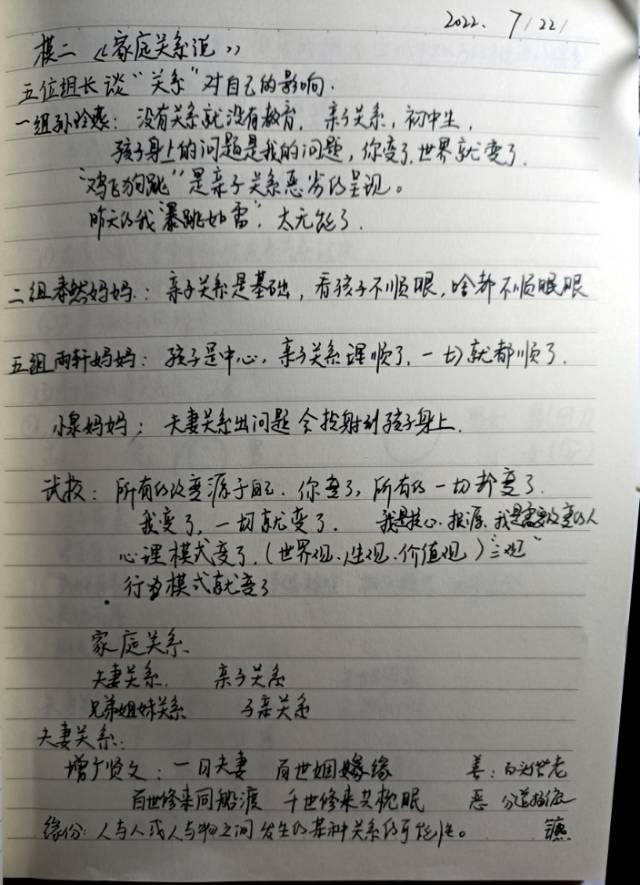 2022. 7/22/
模二《家庭关系说》
五位组长谈“关系”对自己的影响.
一组孙玲燕: 没有关系就没有教育. 亲子关系, 初中生,
孩子身上的问题是我的问题, 你变了, 世界就变了.
“鸡飞狗跳”是亲子关系恶劣的呈现。
昨天的我“暴跳如雷”. 太无能了.
二组泰然妈妈: 亲子关系是基础, 看孩子不顺眼, 啥都不顺眼眼
五组雨轩妈妈: 孩子是中心, 亲子关系理顺了, 一切就都顺了.
小泉妈妈: 夫妻关系出问题会投射到孩子身上.
所有的改变源于自己. 你变了, 所有的一切都变了.
我变了, 一切就变了. 我是核心、根源. 我是需要改变的人
心理模式变了, (世界观、人生观、价值观)“三观”
行为模式就变了
家庭关系.
夫妻关系. 亲子关系
兄弟姐妹关系 子亲关系
夫妻关系:
增广贤文: 一日夫妻 百世姻缘 善: 白头偕老
百世修来同船渡 千世修来共枕眠 恶 分道扬镳
缘份: 人与人或人与物之间发生的某种关系的可能性。 镳